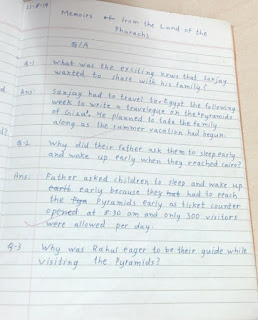 Memoirs from the Land of the
Pharaohs
Q/A
Q-1 What was the exciting news that Sanjay
wanted to share with his family?
Ans: Sanjay had to travel to Egypt the following
week to write a travelogue on the "Pyramids
of Giza". He planned to take the family
along as the summer vacation had begun.
Q-2 Why did their father ask them to sleep early
and wake up early when they reached Cairo?
Ans: Father asked children to sleep and wake up
early because they had to reach
the Pyramids early as ticket counter
opened at 8:30 am and only 300 visitors
were allowed per day.
Q-3 Why was Rahul eager to be their guide while
visiting the Pyramids?